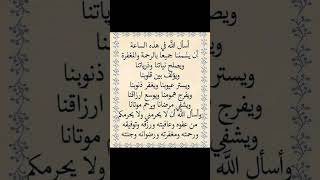 أسأل الله في هذه الساعة
أن يشملنا جميعاً بالرحمة والمغفرة
ويصلح نياتنا وذرياتنا
ويؤلف بين قلوبنا
ويستر عيوبنا ويغفر ذنوبنا
ويفرج همومنا ويوسع ارزاقنا
ويشفي مرضانا ورحم موتانا
وأسأل الله أن لا يحرمني ولا يحرمكم
من عفوه وعافيته ورزقه وتوفيقه
ورحمته ومغفرته ورضوانه وجنته